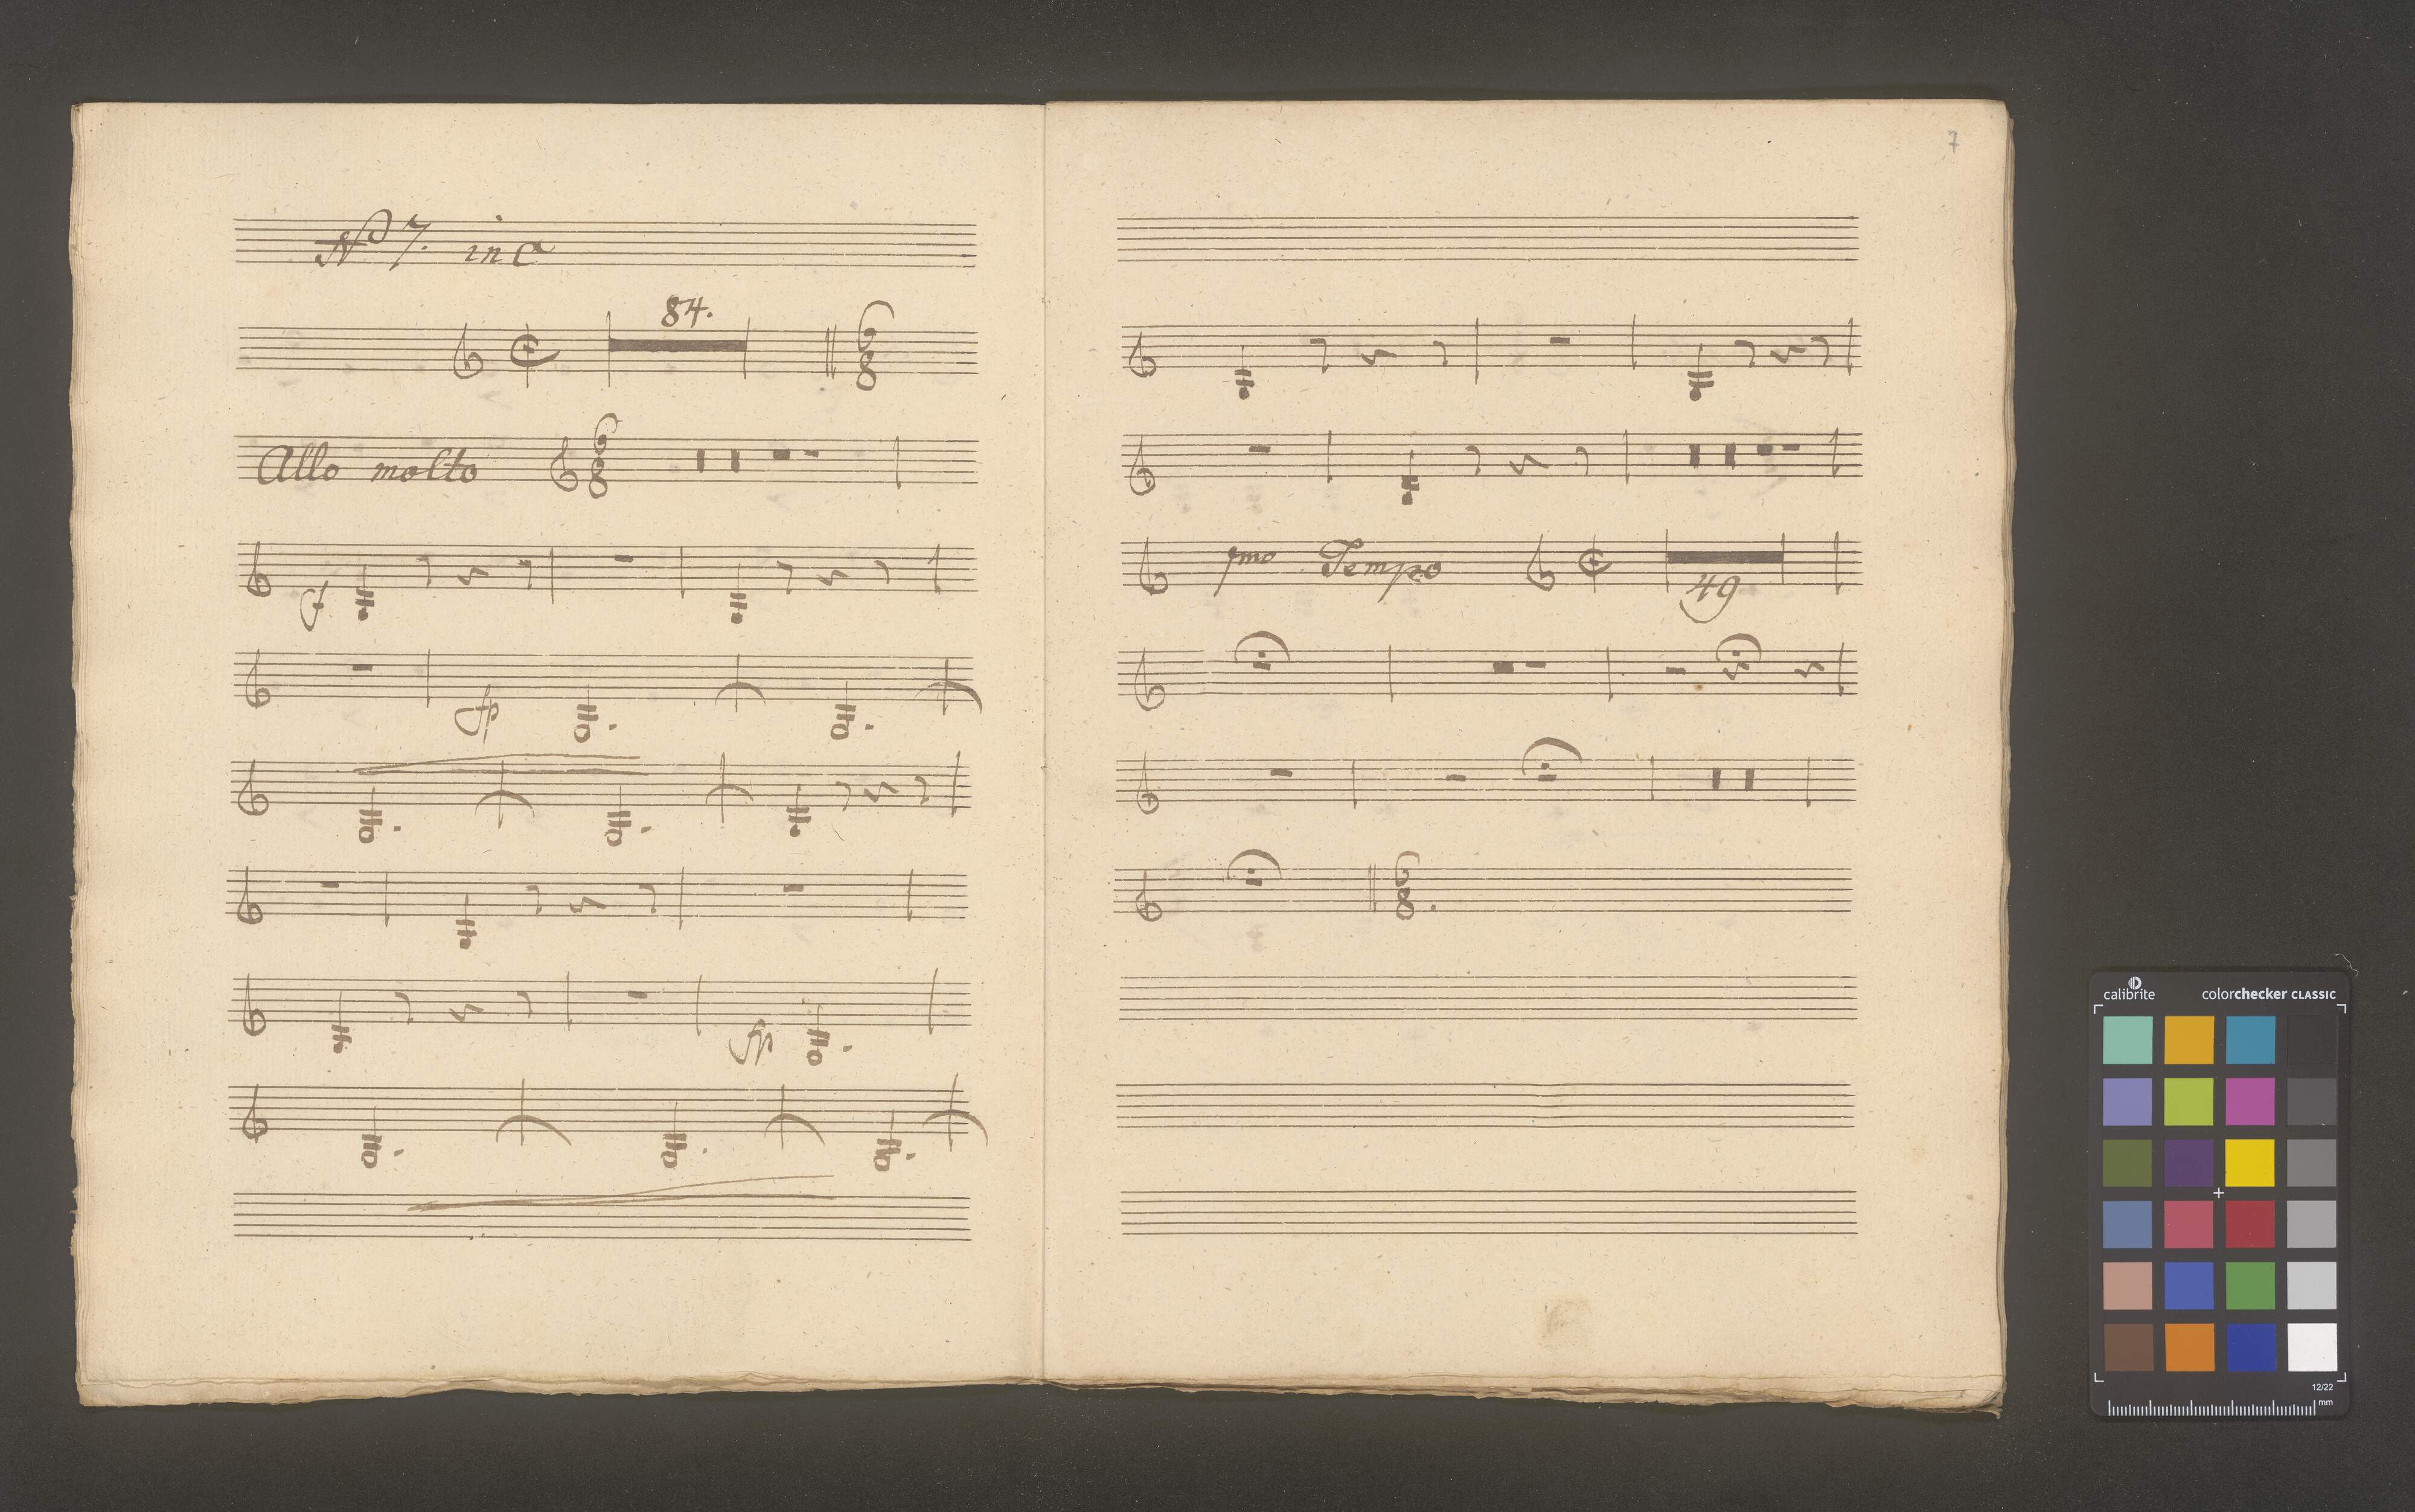 No 7. in C
84.
6
8
Allo molto 6
8
f
fp
fp
7
1mo Tempo
49
6
8.
calibrite colorchecker CLASSIC
12/22
mm